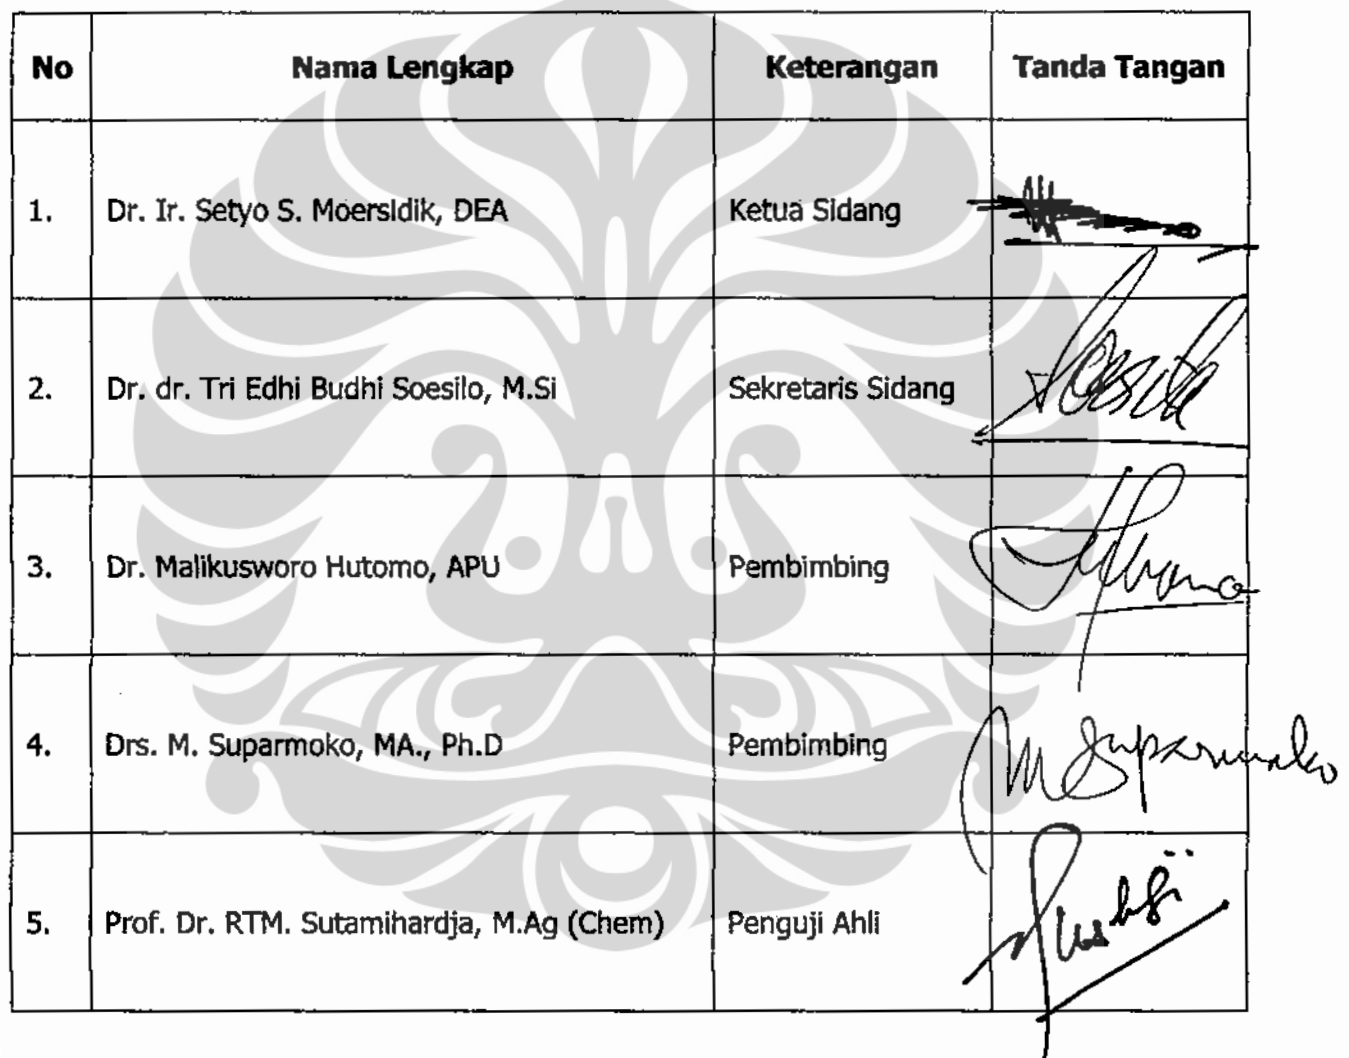 No Nama Lengkap Keterangan Tanda Tangan
1. Dr. Ir. Setyo S. Moersidik, DEA Ketua Sidang
2. Dr. dr. Tri Edhi Budhi Soesilo, M.Si Sekretaris Sidang
3. Dr. Malikusworo Hutomo, APU Pembimbing
4. Drs. M. Suparmoko, MA., Ph.D Pembimbing M Suparmoko
5. Prof. Dr. RTM. Sutamihardja, M.Ag (Chem) Penguji Ahli